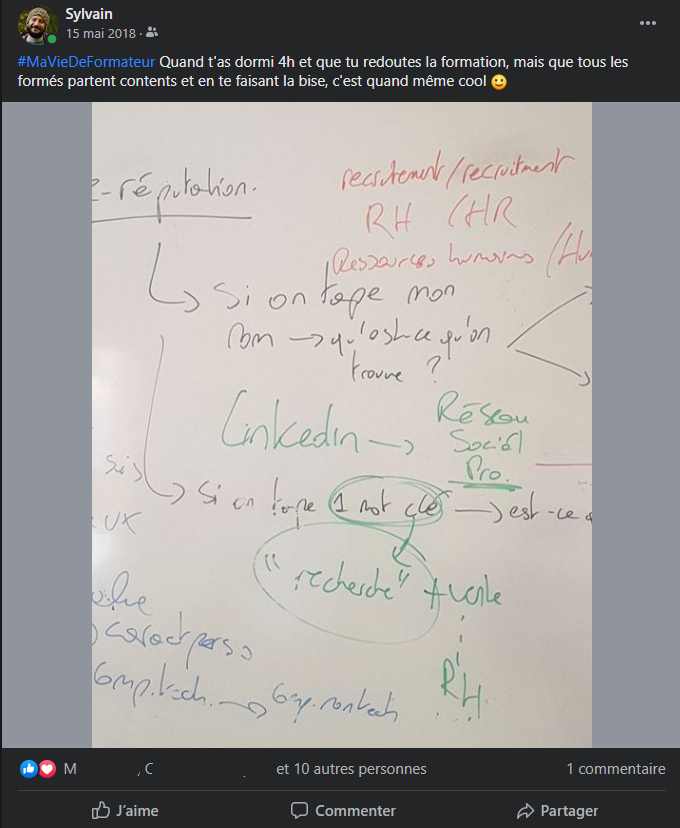 Sylvain
15 mai 2018 ·
#MaVieDeFormateur Quand t'as dormi 4h et que tu redoutes la formation, mais que tous les
formés partent contents et en te faisant la bise, c'est quand même cool 🙂
-réputation.
recrutement/recruitment
RH /HR
Ressources humaines /Hu
Si on tape mon
Nom → qu'est-ce qu'on
trouve ?
Linkedin → Réseau
Social
Pro.
Si on tape 1 mot clé → est-ce
UX
"recherche" +
RH
caract perso
Comp. tech. → Comp. non tech
M , C . et 10 autres personnes
1 commentaire
J'aime
Commenter
Partager